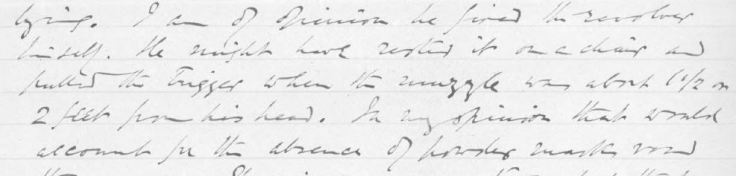 lying. I am of opinion he fired the revolver
himself. He might have rested it on a chair and
pulled the trigger when the muzzle was about 1 1/2 or
2 feet from his head. In my opinion that would
account for the absence of powder marks round
the